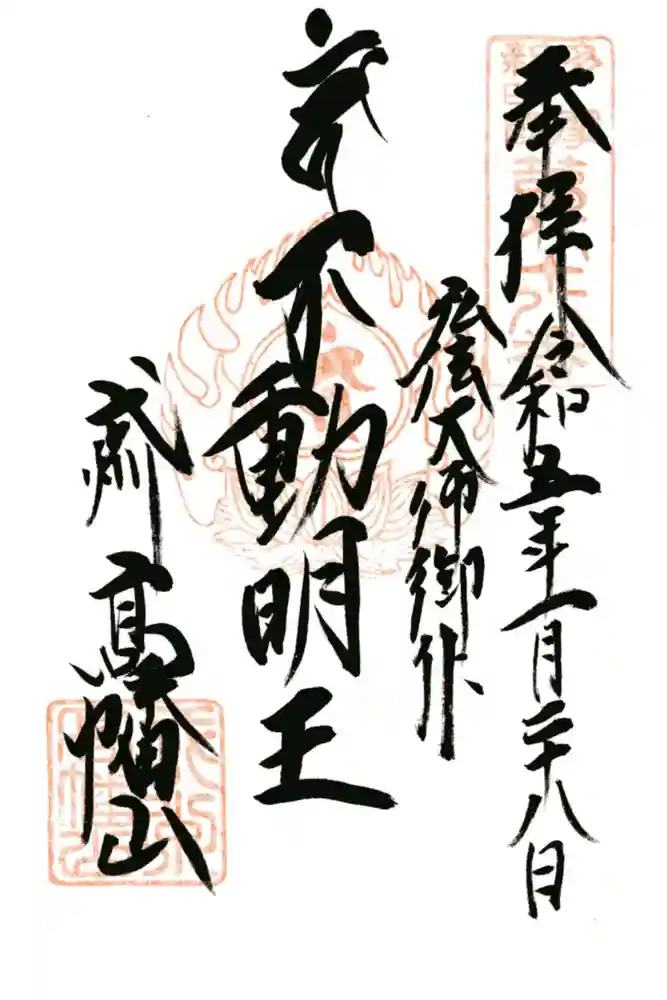 奉拝 令和五年一月二十八日
弘法大師御作
不動明王
武州 高幡山